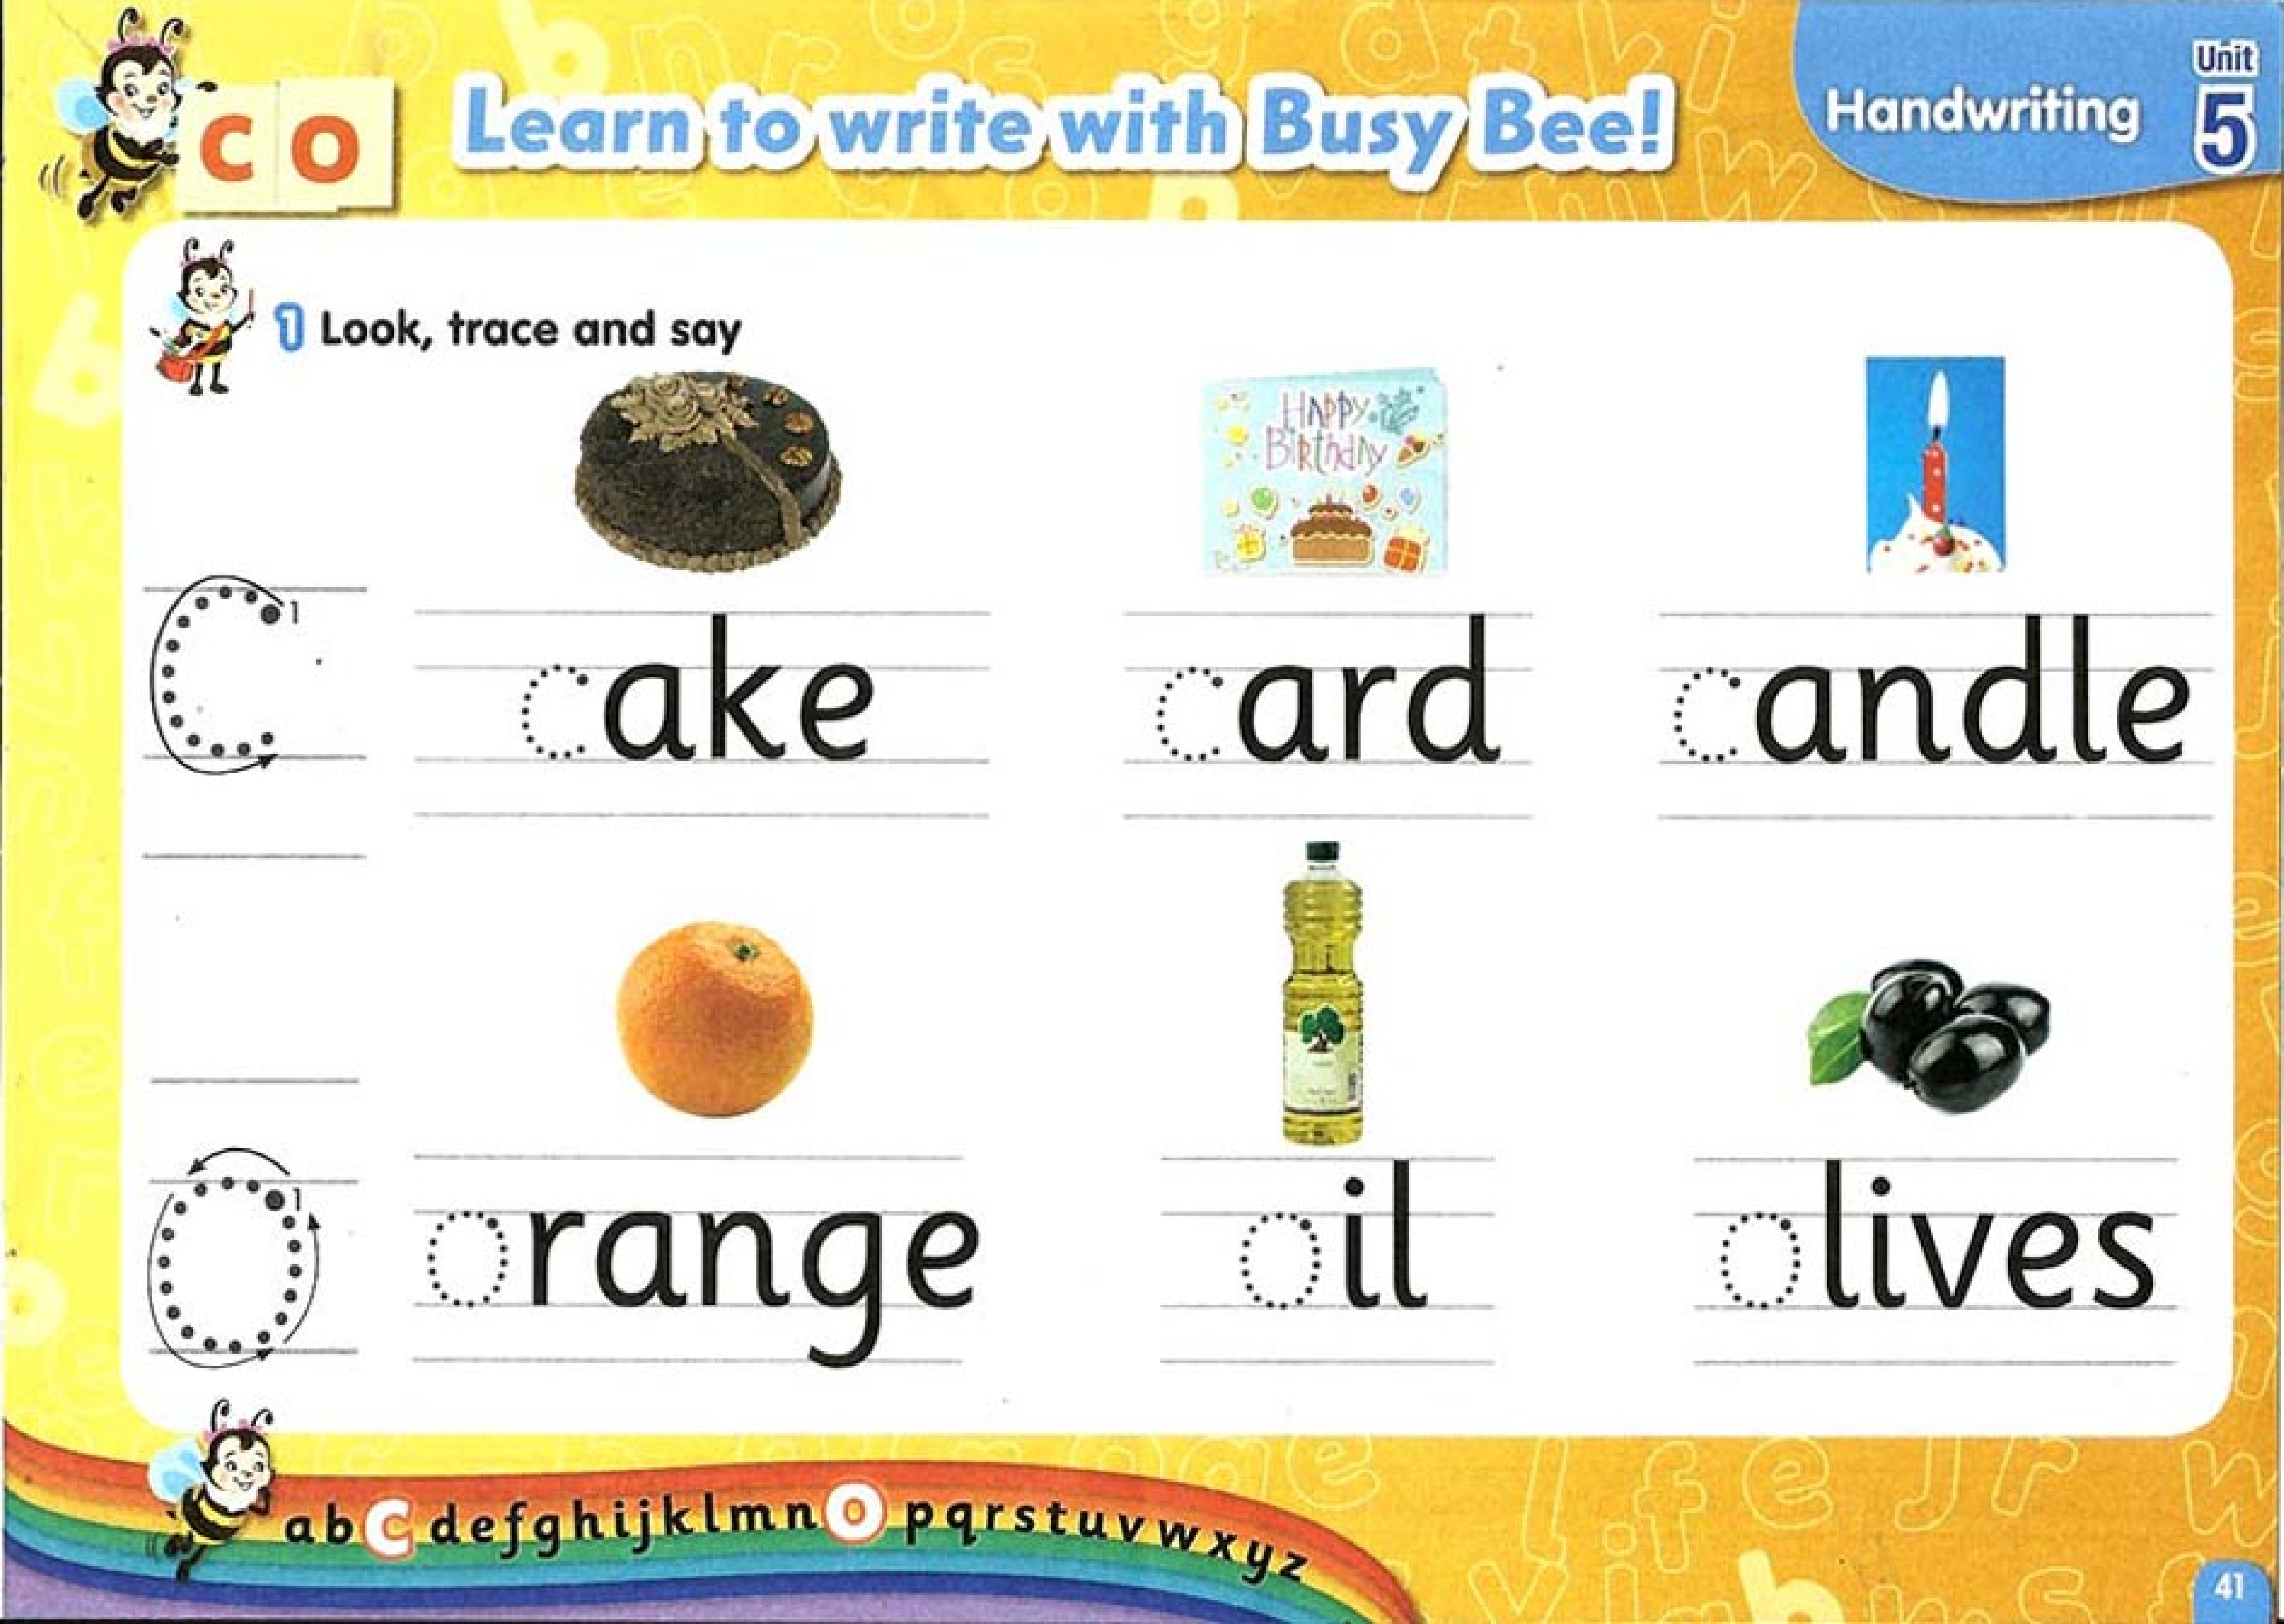 c o
Learn to write with Busy Bee!
Handwriting
Unit
5
1 Look, trace and say
Happy
Birthday
c 1
cake
card
candle
o 1
orange
oil
olives
abcdefghijklmnopqrstuvwxyz
41